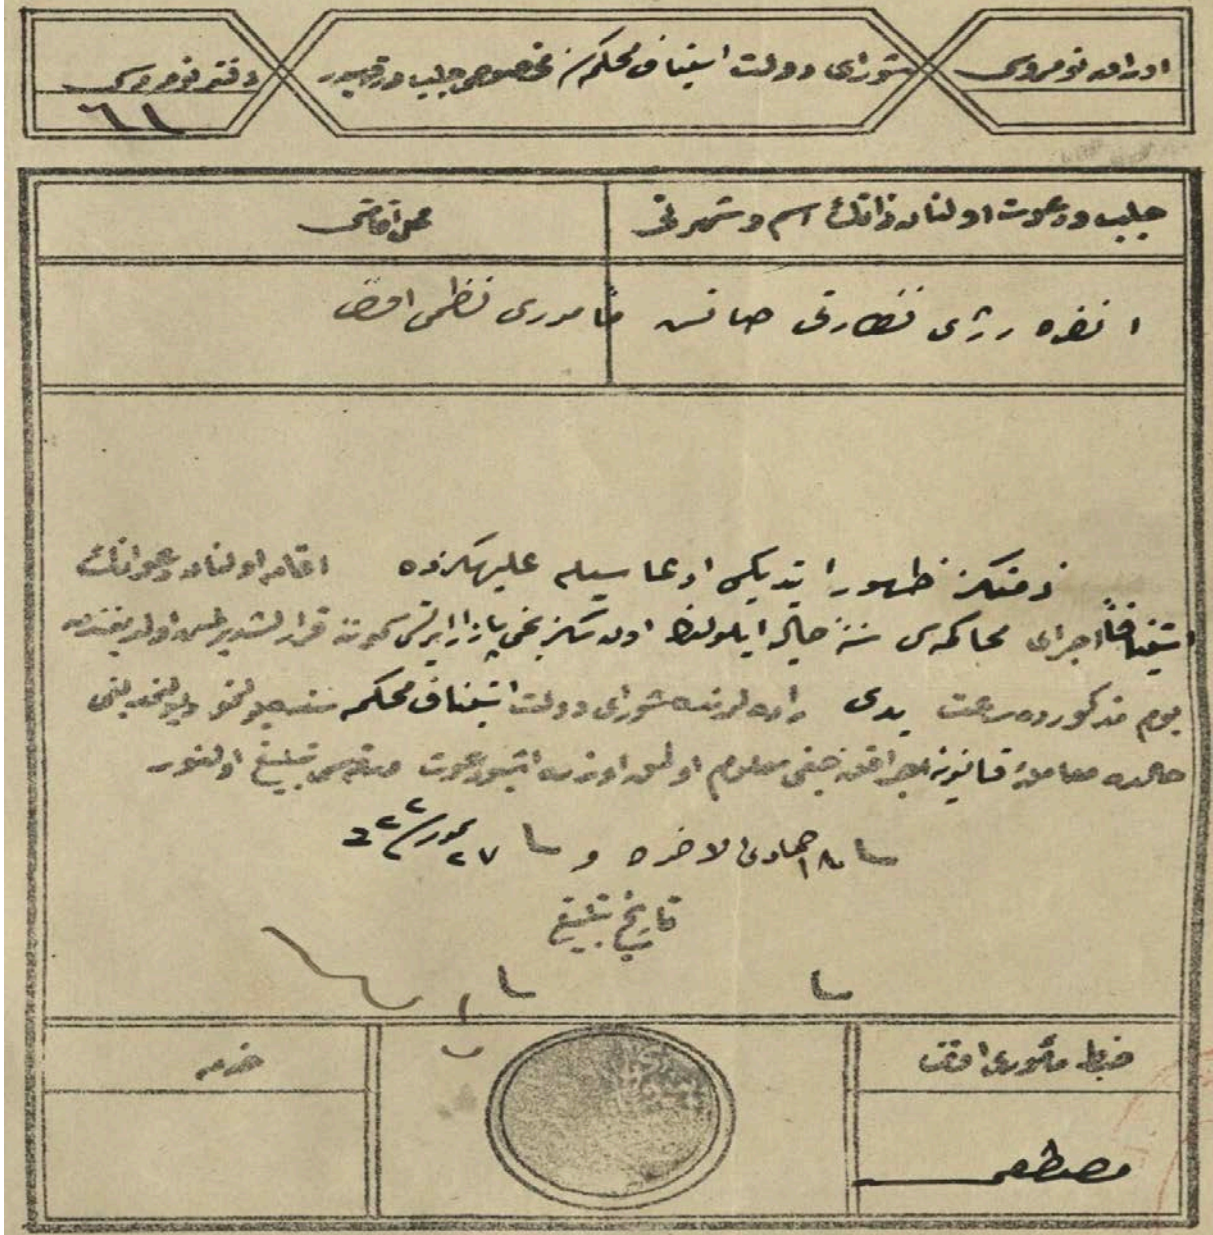 اوراق نومروسی
شورای دولت استیناف محکمه‌سنه مخصوص جلب ورقه‌سیدر
دفتر نومروسی
٦١
جلب و دعوت اولنان ذاتك اسم و شهرتی
محل اقامتی
انقره رژی نظارتی صابق مأموری نظمی افندی
ذمتکز ظهور ایتدیکی ادعاسیله علیهکزده اقامه اولنان دعوانك
استینافاً اجرای محاکمه‌سی سنهٔ حالیه ایلولنك اون سکزنجی پازار ایرتسی کوننه قرارلشدیرلمش اولدیغندن
یوم مذکورده ساعت یدی راده‌لرنده شورای دولت استیناف محکمه‌سنده بولنمز
حالده معاملهٔ قانونیه اجرا قلنه‌جغی معلوم اولمق اوزره اشبو دعوت ورقه‌سی تبلیغ اولنور
فی ١٨ جمادی الاخره و فی ٢٧ تموز ٣٢٢
تاریخ تبلیغ
فی فی
ضبط مأموری افندی
مصطفی